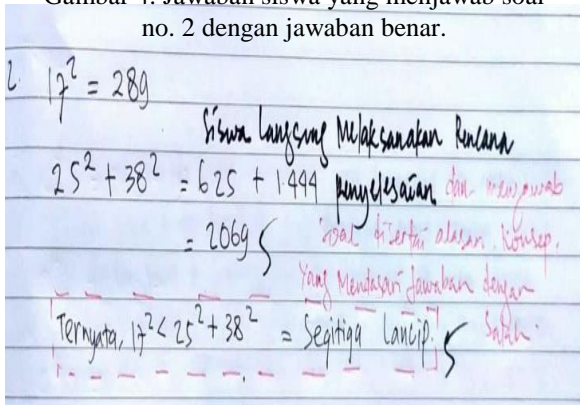 Gambar 4. Jawaban siswa yang menjawab soal
no. 2 dengan jawaban benar.
2. 17² = 289
Siswa langsung melaksanakan Rencana
25² + 38² = 625 + 1.444 penyelesaian dan menjawab
= 2069 soal disertai alasan. Konsep.
Yang Mendasari Jawaban dengan
Ternyata, 17² < 25² + 38² = Segitiga Lancip. Salah.